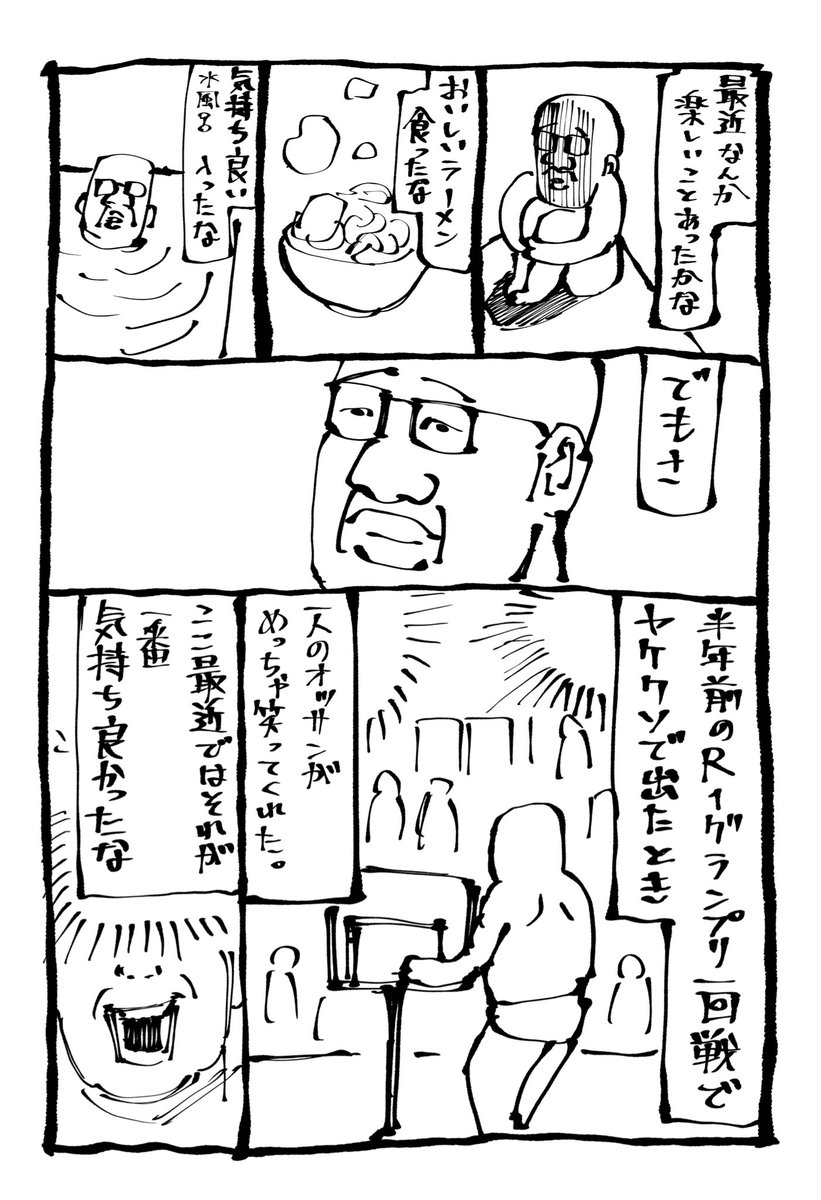 最近なんか
楽しいことあったかな
おいしいラーメン
食ったな
気持ち良い
水風呂入ったな
でもさ
半年前のR-1グランプリ一回戦で
ヤケクソで出たとき
一人のオッサンが
めっちゃ笑ってくれた。
ここ最近ではそれが
一番
気持ち良かったな